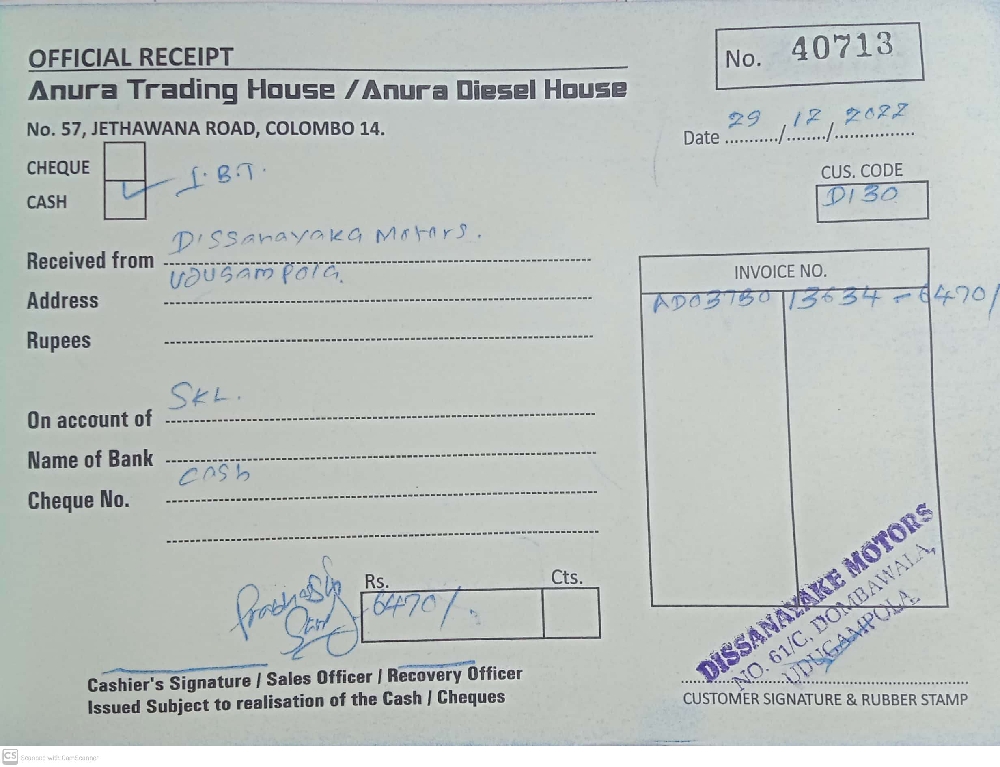 OFFICIAL RECEIPT
No. 40713
Anura Trading House / Anura Diesel House
No. 57, JETHAWANA ROAD, COLOMBO 14.
Date 29 / 12 / 2022
CHEQUE
I.B.T.
CASH
CUS. CODE
DI30
Received from Dissanayaka Motors.
Address Udugampola.
Rupees
INVOICE NO.
AD03780 13634 - 6470/
On account of SKL.
Name of Bank
Cheque No. cash
Rs. Cts.
6470/.
DISSANAYAKE MOTORS
NO. 61/C, DOMBAWALA,
UDUGAMPOLA
Cashier's Signature / Sales Officer / Recovery Officer
Issued Subject to realisation of the Cash / Cheques
CUSTOMER SIGNATURE & RUBBER STAMP
CS Scanned with CamScanner